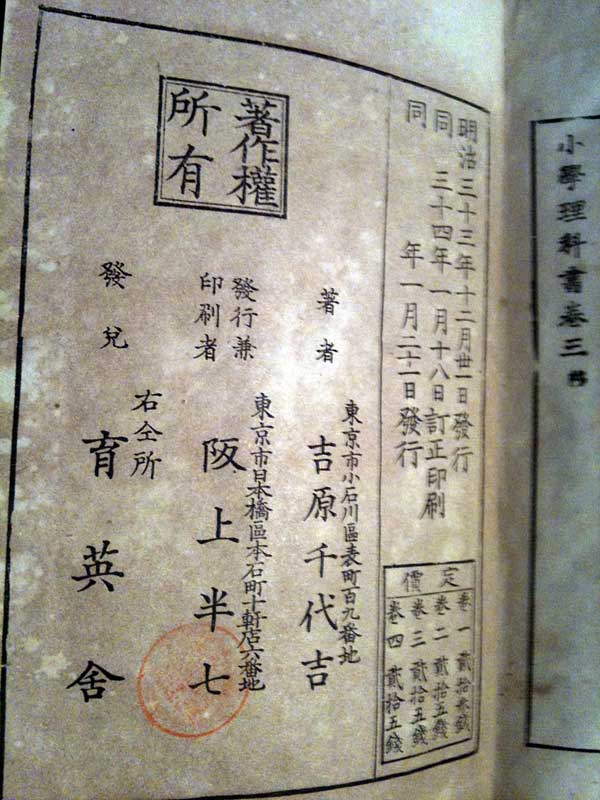 小學理科書卷三
明治三十三年十二月廿一日發行
同　三十四年一月十八日訂正印刷
同　年一月二十一日發行
定價
卷一　貳拾參錢
卷二　貳拾五錢
卷三　貳拾五錢
卷四　貳拾五錢
著作權
所有
東京市小石川區表町百九番地
著者　吉原千代吉
東京市日本橋區本石町十軒店六番地
發行兼
印刷者　阪上半七
右仝所
發兌　育英舍